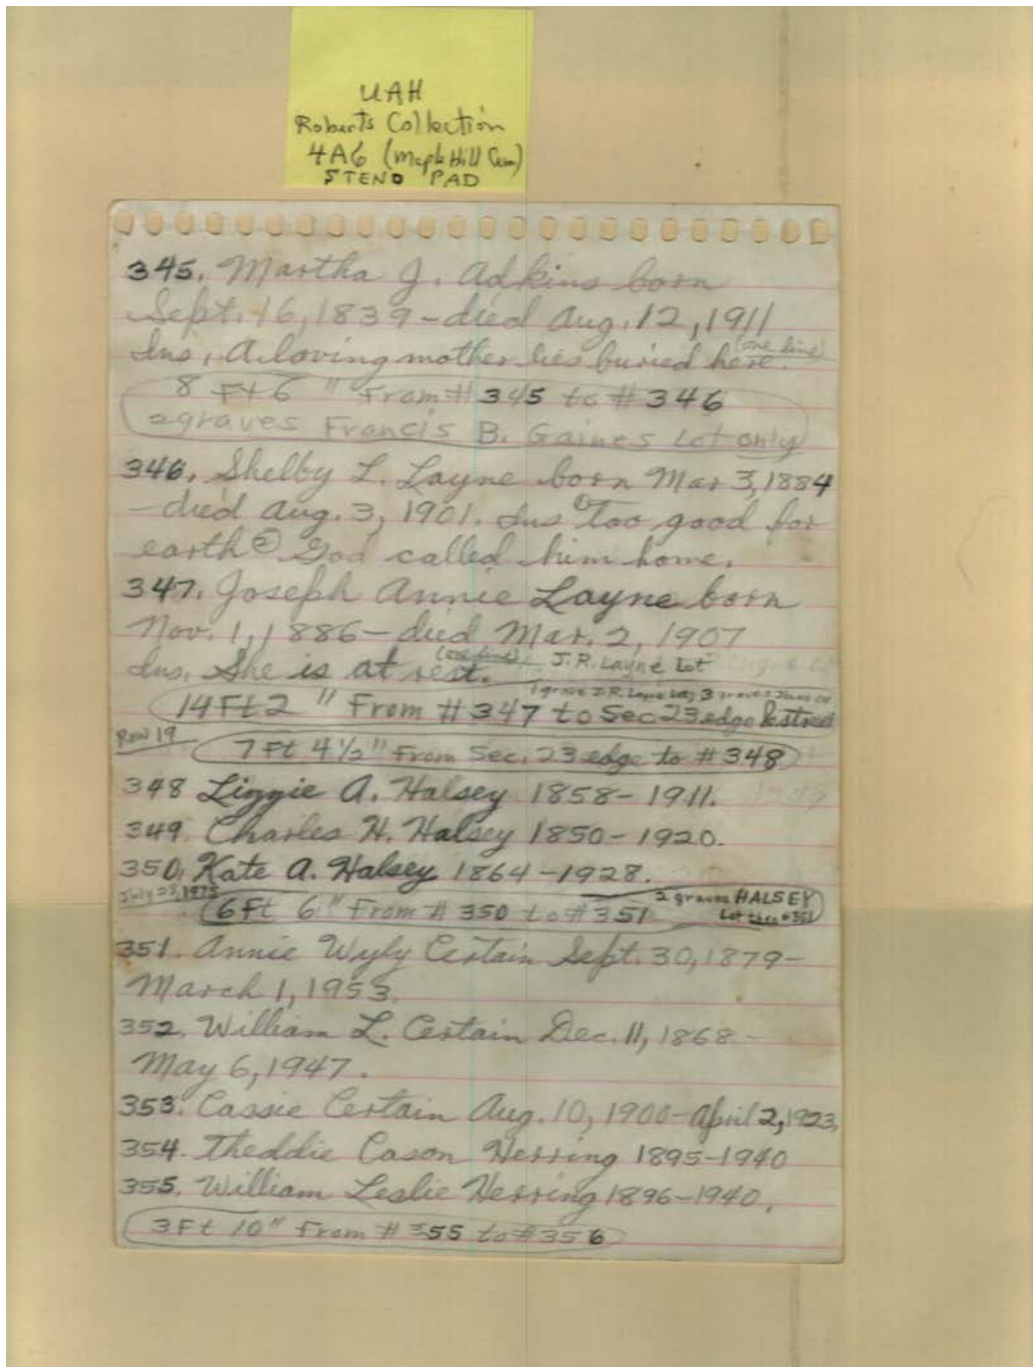 UAH
Roberts Collection
4A6 (Maple Hill Cem)
STENO PAD
345. Martha J. Adkins born
Sept. 16, 1839 - died Aug. 12, 1911
(one line)
Ins, A loving mother lies buried here.
8 Ft 6 " From # 345 to # 346
2 graves Francis B. Gaines Lot only
346. Shelby L. Layne born Mar 3, 1884
- died Aug. 3, 1901. Ins Too good for
earth ② God called him home.
347. Joseph Annie Layne born
Nov. 1, 1886 - died Mar. 2, 1907
Ins, She is at rest. (one line) J. R. Layne Lot
1 grave J.R. Layne Lot, 3 graves
14 Ft 2 " From # 347 to Sec 23 edge & street
Row 19
7 Ft 4 1/2" From Sec. 23 edge to # 348
348 Lizzie A. Halsey 1858 - 1911.
349. Charles H. Halsey 1850 - 1920.
350. Kate A. Halsey 1864 - 1928.
July 1975
6 Ft 6" From # 350 to # 351 2 graves HALSEY
Lot then #351
351. Annie Wyly Certain Sept. 30, 1879 -
March 1, 1953.
352. William L. Certain Dec. 11, 1868 -
May 6, 1947.
353. Cassie Certain Aug. 10, 1900 - April 2, 1923.
354. Theddie Cason Herring 1895 - 1940
355. William Leslie Herring 1896 - 1940.
3 Ft 10" From # 355 to # 356